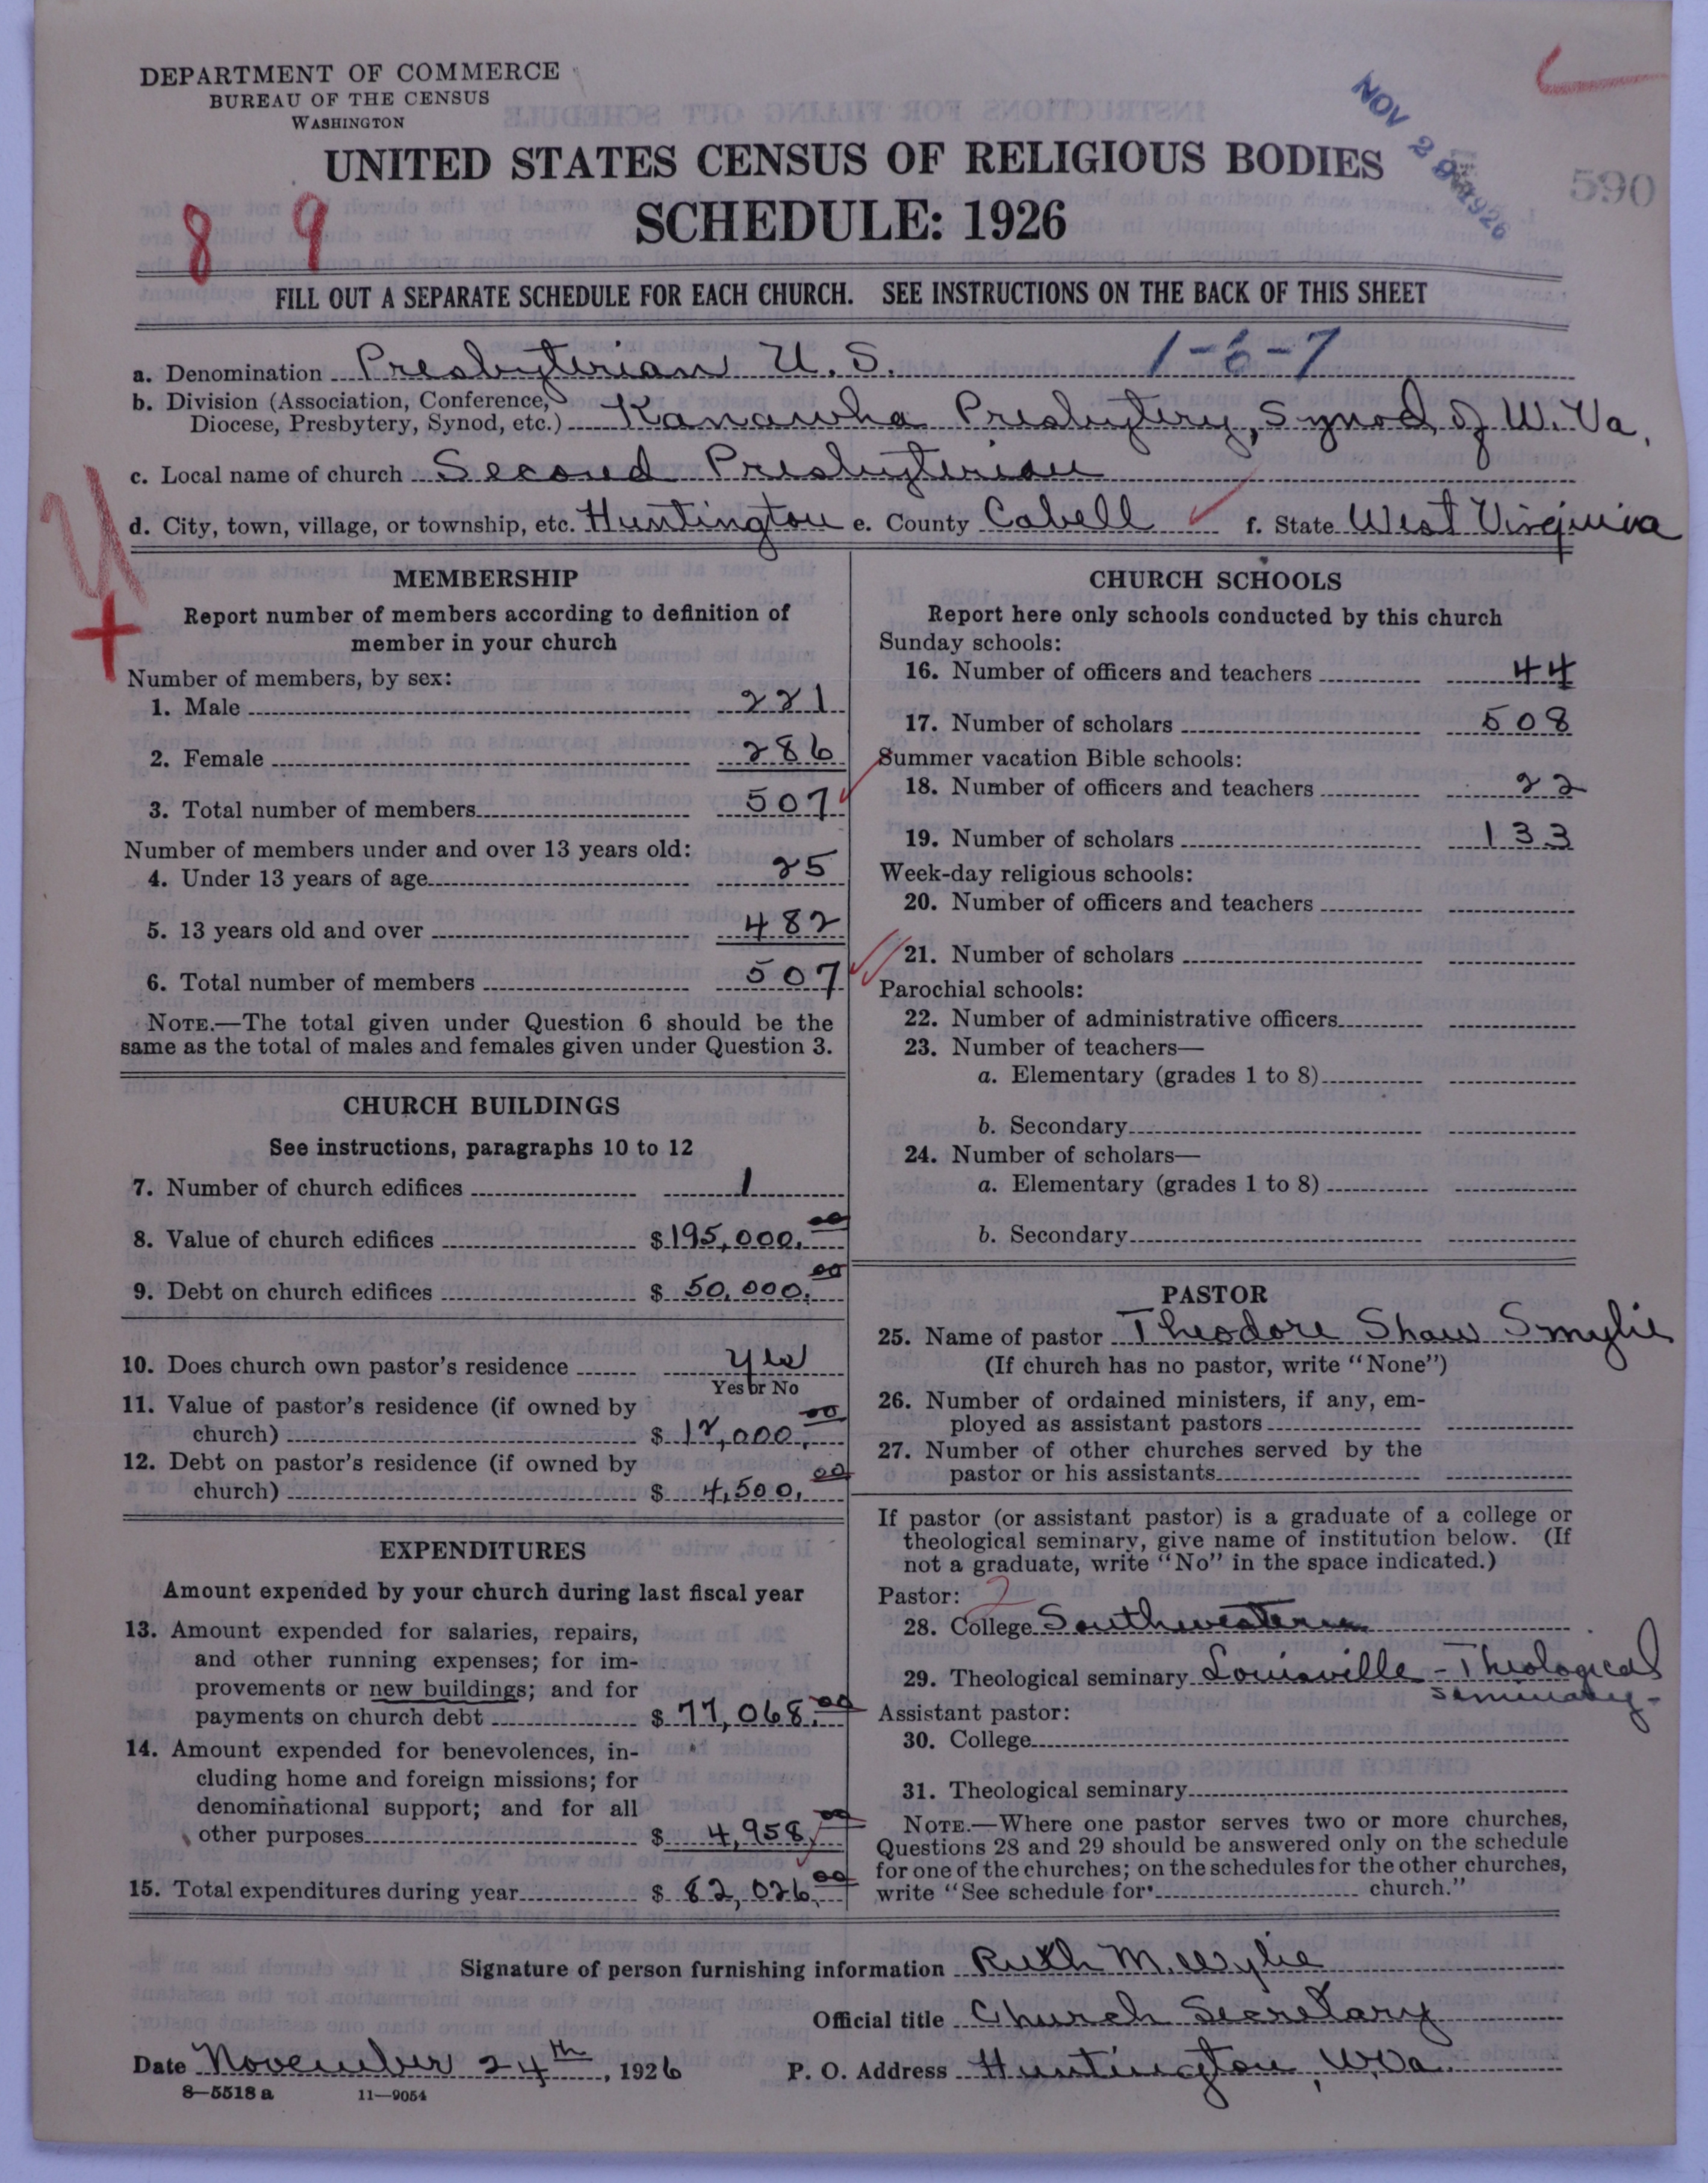 DEPARTMENT OF COMMERCE
BUREAU OF THE CENSUS
WASHINGTON
NOV 29 1926
590
UNITED STATES CENSUS OF RELIGIOUS BODIES
8 9
SCHEDULE: 1926
FILL OUT A SEPARATE SCHEDULE FOR EACH CHURCH. SEE INSTRUCTIONS ON THE BACK OF THIS SHEET
a. Denomination Presbyterian U. S. 1-6-7
b. Division (Association, Conference,
Diocese, Presbytery, Synod, etc.) Kanawha Presbytery, Synod of W. Va.
c. Local name of church Second Presbyterian
d. City, town, village, or township, etc. Huntington e. County Cabell f. State West Virginia
MEMBERSHIP
Report number of members according to definition of
member in your church
Number of members, by sex:
1. Male 221
2. Female 286
3. Total number of members 507
Number of members under and over 13 years old:
4. Under 13 years of age 25
5. 13 years old and over 482
6. Total number of members 507
NOTE.—The total given under Question 6 should be the
same as the total of males and females given under Question 3.
CHURCH BUILDINGS
See instructions, paragraphs 10 to 12
7. Number of church edifices 1
8. Value of church edifices $195,000.00
9. Debt on church edifices $50,000.00
10. Does church own pastor's residence yes
Yes or No
11. Value of pastor's residence (if owned by
church) $12,000.00
12. Debt on pastor's residence (if owned by
church) $4,500.00
EXPENDITURES
Amount expended by your church during last fiscal year
13. Amount expended for salaries, repairs,
and other running expenses; for im-
provements or new buildings; and for
payments on church debt $77,068.00
14. Amount expended for benevolences, in-
cluding home and foreign missions; for
denominational support; and for all
other purposes $4,958.00
15. Total expenditures during year $82,026.00
CHURCH SCHOOLS
Report here only schools conducted by this church
Sunday schools:
16. Number of officers and teachers 44
17. Number of scholars 508
Summer vacation Bible schools:
18. Number of officers and teachers 22
19. Number of scholars 133
Week-day religious schools:
20. Number of officers and teachers
21. Number of scholars
Parochial schools:
22. Number of administrative officers
23. Number of teachers—
a. Elementary (grades 1 to 8)
b. Secondary
24. Number of scholars—
a. Elementary (grades 1 to 8)
b. Secondary
PASTOR
25. Name of pastor Theodore Shaw Smylie
(If church has no pastor, write "None")
26. Number of ordained ministers, if any, em-
ployed as assistant pastors
27. Number of other churches served by the
pastor or his assistants
If pastor (or assistant pastor) is a graduate of a college or
theological seminary, give name of institution below. (If
not a graduate, write "No" in the space indicated.)
Pastor: 2
28. College Southwestern
29. Theological seminary Louisville - Theological
Seminary-
Assistant pastor:
30. College
31. Theological seminary
NOTE.—Where one pastor serves two or more churches,
Questions 28 and 29 should be answered only on the schedule
for one of the churches; on the schedules for the other churches,
write "See schedule for church."
Signature of person furnishing information Ruth M. Wylie
Official title Church Secretary
Date November 24th, 1926 P. O. Address Huntington, W.Va.
8—5518 a 11—9054